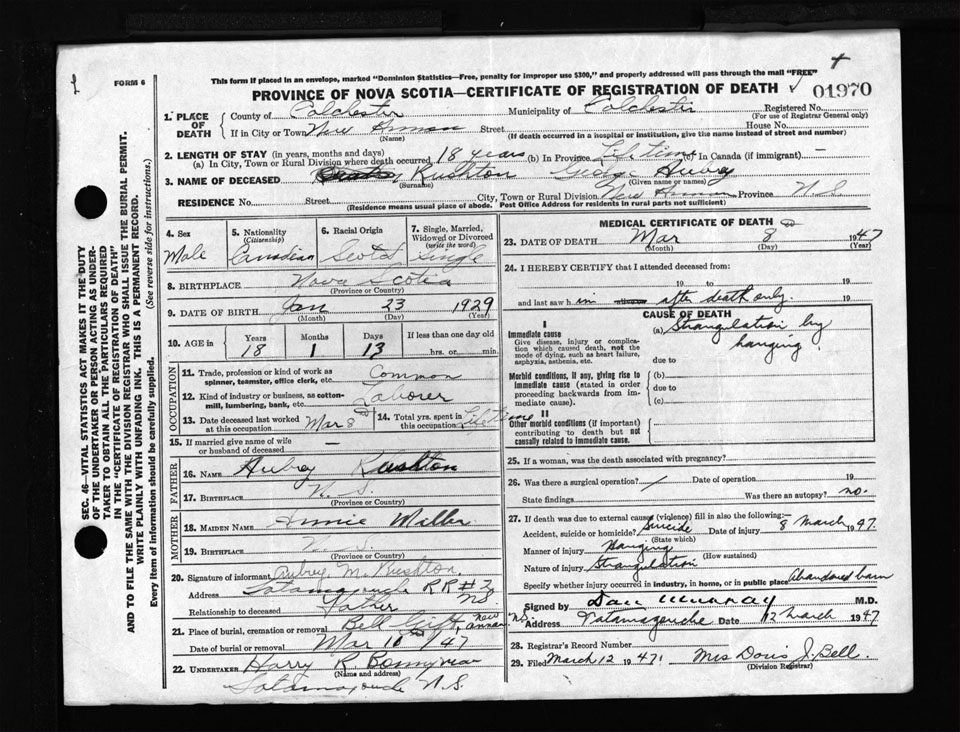 FORM 6
This form if placed in an envelope, marked "Dominion Statistics—Free, penalty for improper use $300," and properly addressed will pass through the mail "FREE"
PROVINCE OF NOVA SCOTIA—CERTIFICATE OF REGISTRATION OF DEATH
01970
1. PLACE OF DEATH
County of Colchester Municipality of Colchester Registered No.
(For use of Registrar General only)
If in City or Town New Annan Street House No.
(Name) (If death occurred in a hospital or institution, give the name instead of street and number)
2. LENGTH OF STAY (in years, months and days)
(a) In City, Town or Rural Division where death occurred 18 years (b) In Province Lifetime (c) In Canada (if immigrant) —
3. NAME OF DECEASED Rushton George Aubrey
(Surname) (Given name or names)
RESIDENCE No. Street City, Town or Rural Division New Annan Province N.S
(Residence means usual place of abode. Post Office Address for residents in rural parts not sufficient)
4. Sex
Male
5. Nationality
(Citizenship)
Canadian
6. Racial Origin
Scotch
7. Single, Married, Widowed or Divorced
(write the word)
Single
8. BIRTHPLACE Nova Scotia
(Province or Country)
9. DATE OF BIRTH Jan 23 1929
(Month) (Day) (Year)
10. AGE in
Years Months Days If less than one day old
18 1 13 hrs. or min.
OCCUPATION
11. Trade, profession or kind of work as spinner, teamster, office clerk, etc. Common
12. Kind of industry or business, as cotton-mill, lumbering, bank, etc. Laborer
13. Date deceased last worked at this occupation Mar 8
14. Total yrs. spent in this occupation Lifetime
15. If married give name of wife or husband of deceased —
FATHER
16. NAME Aubrey Rushton
17. BIRTHPLACE N.S.
(Province or Country)
MOTHER
18. MAIDEN NAME Annie Miller
19. BIRTHPLACE N.S.
(Province or Country)
20. Signature of informant Aubrey M. Rushton
Address Tatamagouche RR#2 NS
Relationship to deceased Father
21. Place of burial, cremation or removal Bell Grift, New Annan
Date of burial or removal Mar 10 /47
22. UNDERTAKER Harry R. Bonnyman
(Name and address)
Tatamagouche N.S.
MEDICAL CERTIFICATE OF DEATH
23. DATE OF DEATH Mar 8 1947
(Month) (Day) (Year)
24. I HEREBY CERTIFY that I attended deceased from:
19 to 19
and last saw him after death only. 19
CAUSE OF DEATH
I
Immediate cause
Give disease, injury or complication which caused death, not the mode of dying, such as heart failure, asphyxia, asthenia, etc.
(a) Strangulation by hanging
due to
Morbid conditions, if any, giving rise to immediate cause (stated in order proceeding backwards from immediate cause).
(b)
due to
(c)
II
Other morbid conditions (if important) contributing to death but not causally related to immediate cause.
25. If a woman, was the death associated with pregnancy?
26. Was there a surgical operation? / Date of operation 19
State findings Was there an autopsy? no.
27. If death was due to external causes (violence) fill in also the following:—
Accident, suicide or homicide? Suicide Date of injury 8 March 1947.
(State which)
Manner of injury Hanging
(How sustained)
Nature of injury Strangulation
Specify whether injury occurred in industry, in home, or in public place Abandoned barn
Signed by Dan Murray M.D.
Address Tatamagouche NS. Date 12 March 1947
28. Registrar's Record Number
29. Filed March 12 1947. Mrs Doris J. Bell.
(Division Registrar)
SEC. 46—VITAL STATISTICS ACT MAKES IT THE DUTY
OF THE UNDERTAKER OR PERSON ACTING AS UNDER-
TAKER TO OBTAIN ALL THE PARTICULARS REQUIRED
IN THE "CERTIFICATE OF REGISTRATION OF DEATH"
AND TO FILE THE SAME WITH THE DIVISION REGISTRAR WHO SHALL ISSUE THE BURIAL PERMIT.
WRITE PLAINLY WITH UNFADING INK. THIS IS A PERMANENT RECORD.
Every item of information should be carefully supplied. (See reverse side for instructions.)